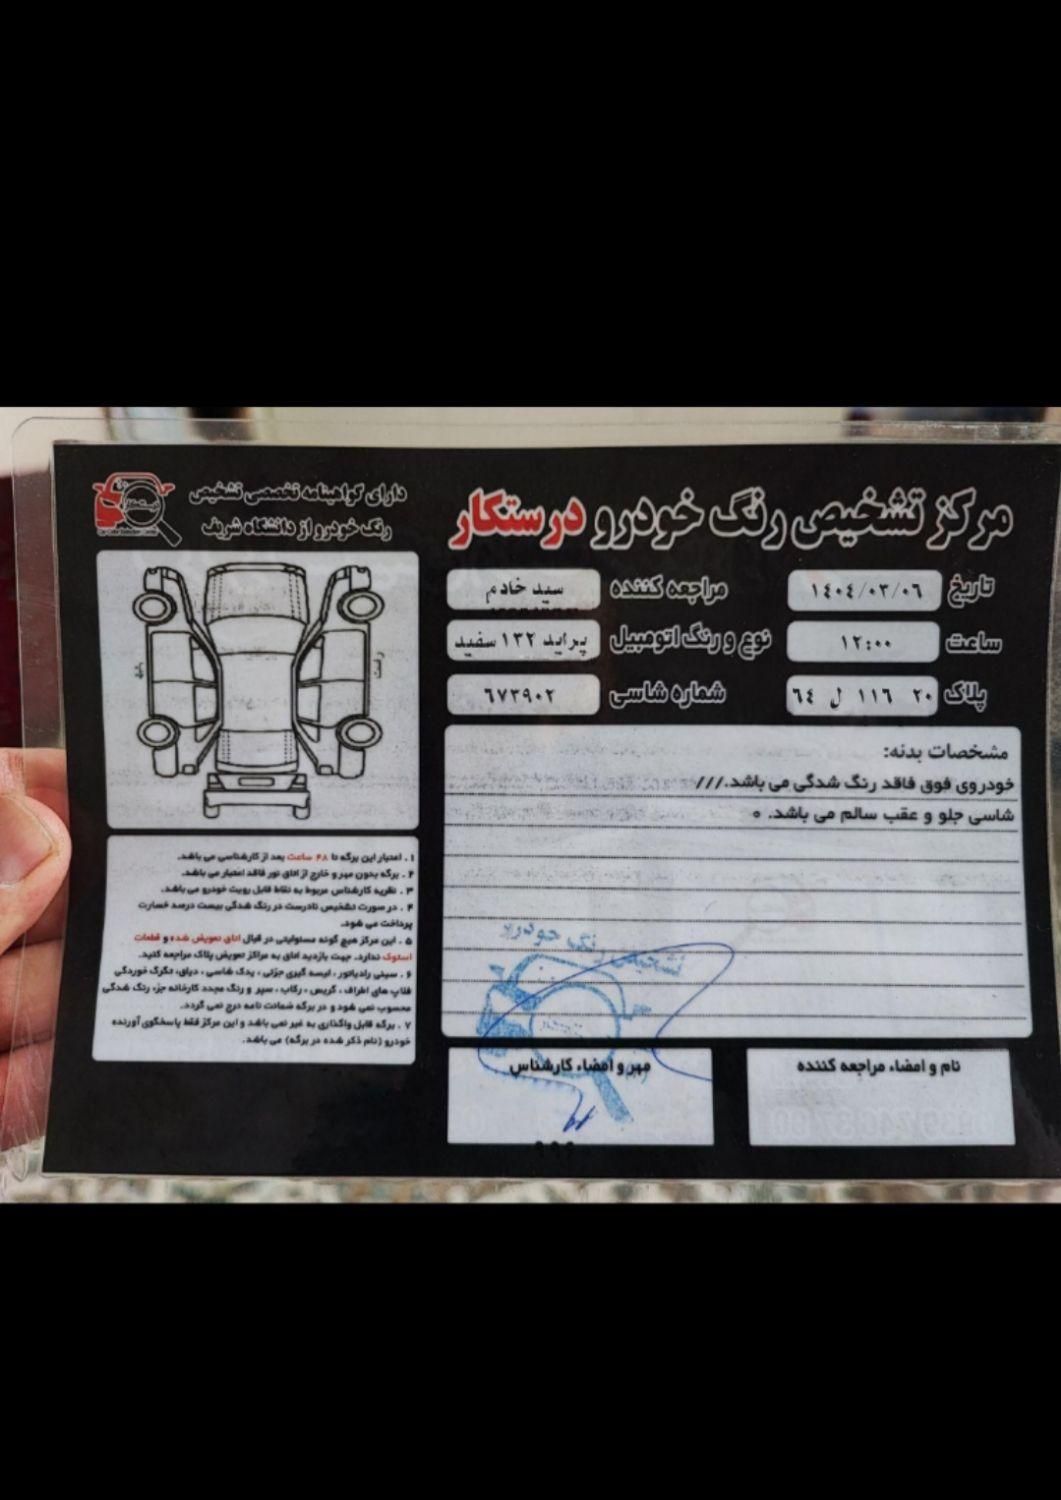 مرکز تشخیص رنگ خودرو درستکار
دارای گواهینامه تخصصی تشخیص
رنگ خودرو از دانشگاه شریف
تاریخ ۱٤۰٤/۰۳/۰٦ مراجعه کننده سید خادم
ساعت ۱۲:۰۰ نوع و رنگ اتومبیل پراید ۱۳۲ سفید
پلاک ۲۰ ۱۱٦ ل ٦٤ شماره شاسی ٦۷۳۹۰۲
مشخصات بدنه:
خودروی فوق فاقد رنگ شدگی می باشد.///
شاسی جلو و عقب سالم می باشد. ٥
تشخیص رنگ خودرو
مهر و امضاء کارشناس
نام و امضاء مراجعه کننده
راست
۱ . اعتبار این برگه تا ۴۸ ساعت بعد از کارشناسی می باشد.
۲ . برگه بدون مهر و خارج از اتاق نور فاقد اعتبار می باشد.
۳ . نظریه کارشناس مربوط به نقاط قابل رویت خودرو می باشد.
۴ . در صورت تشخیص نادرست در رنگ شدگی بیست درصد خسارت
پرداخت می شود.
۵ . این مرکز هیچ گونه مسئولیتی در قبال اتاق تعویض شده و قطعات
استوک ندارد. جهت بازدید اتاق به مراکز تعویض پلاک مراجعه کنید.
۶ . سینی رادیاتور ، لیسه گیری جزئی ، یدک شاسی ، دیاق، تگرگ خوردگی
فلاپ های اطراف ، گریس ، رکاب ، سپر و رنگ مجدد کارخانه جزء رنگ شدگی
محسوب نمی شود و در برگه ضمانت نامه درج نمی گردد.
۷ . برگه قابل واگذاری به غیر نمی باشد و این مرکز فقط پاسخگوی آورنده
خودرو (نام ذکر شده در برگه) می باشد.